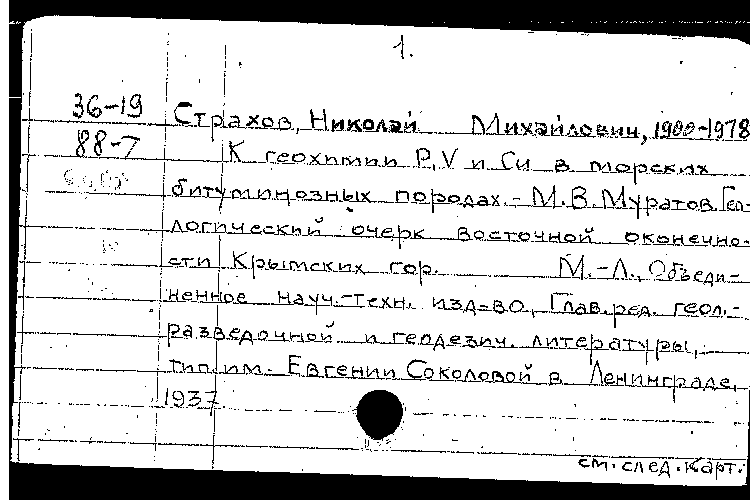 1.
36-19 Страхов, Николай Михайлович, 1900-1978
88-7 К геохимии P, V и Cu в морских
битуминозных породах.- М.В. Муратов. Гео-
логический очерк восточной оконечно-
сти Крымских гор. М.-Л., Объеди-
ненное науч.-техн. изд-во, Глав. ред. геол.-
разведочной и геодезич. литературы,
тип. им. Евгении Соколовой в Ленинграде,
1937
см. след. карт.